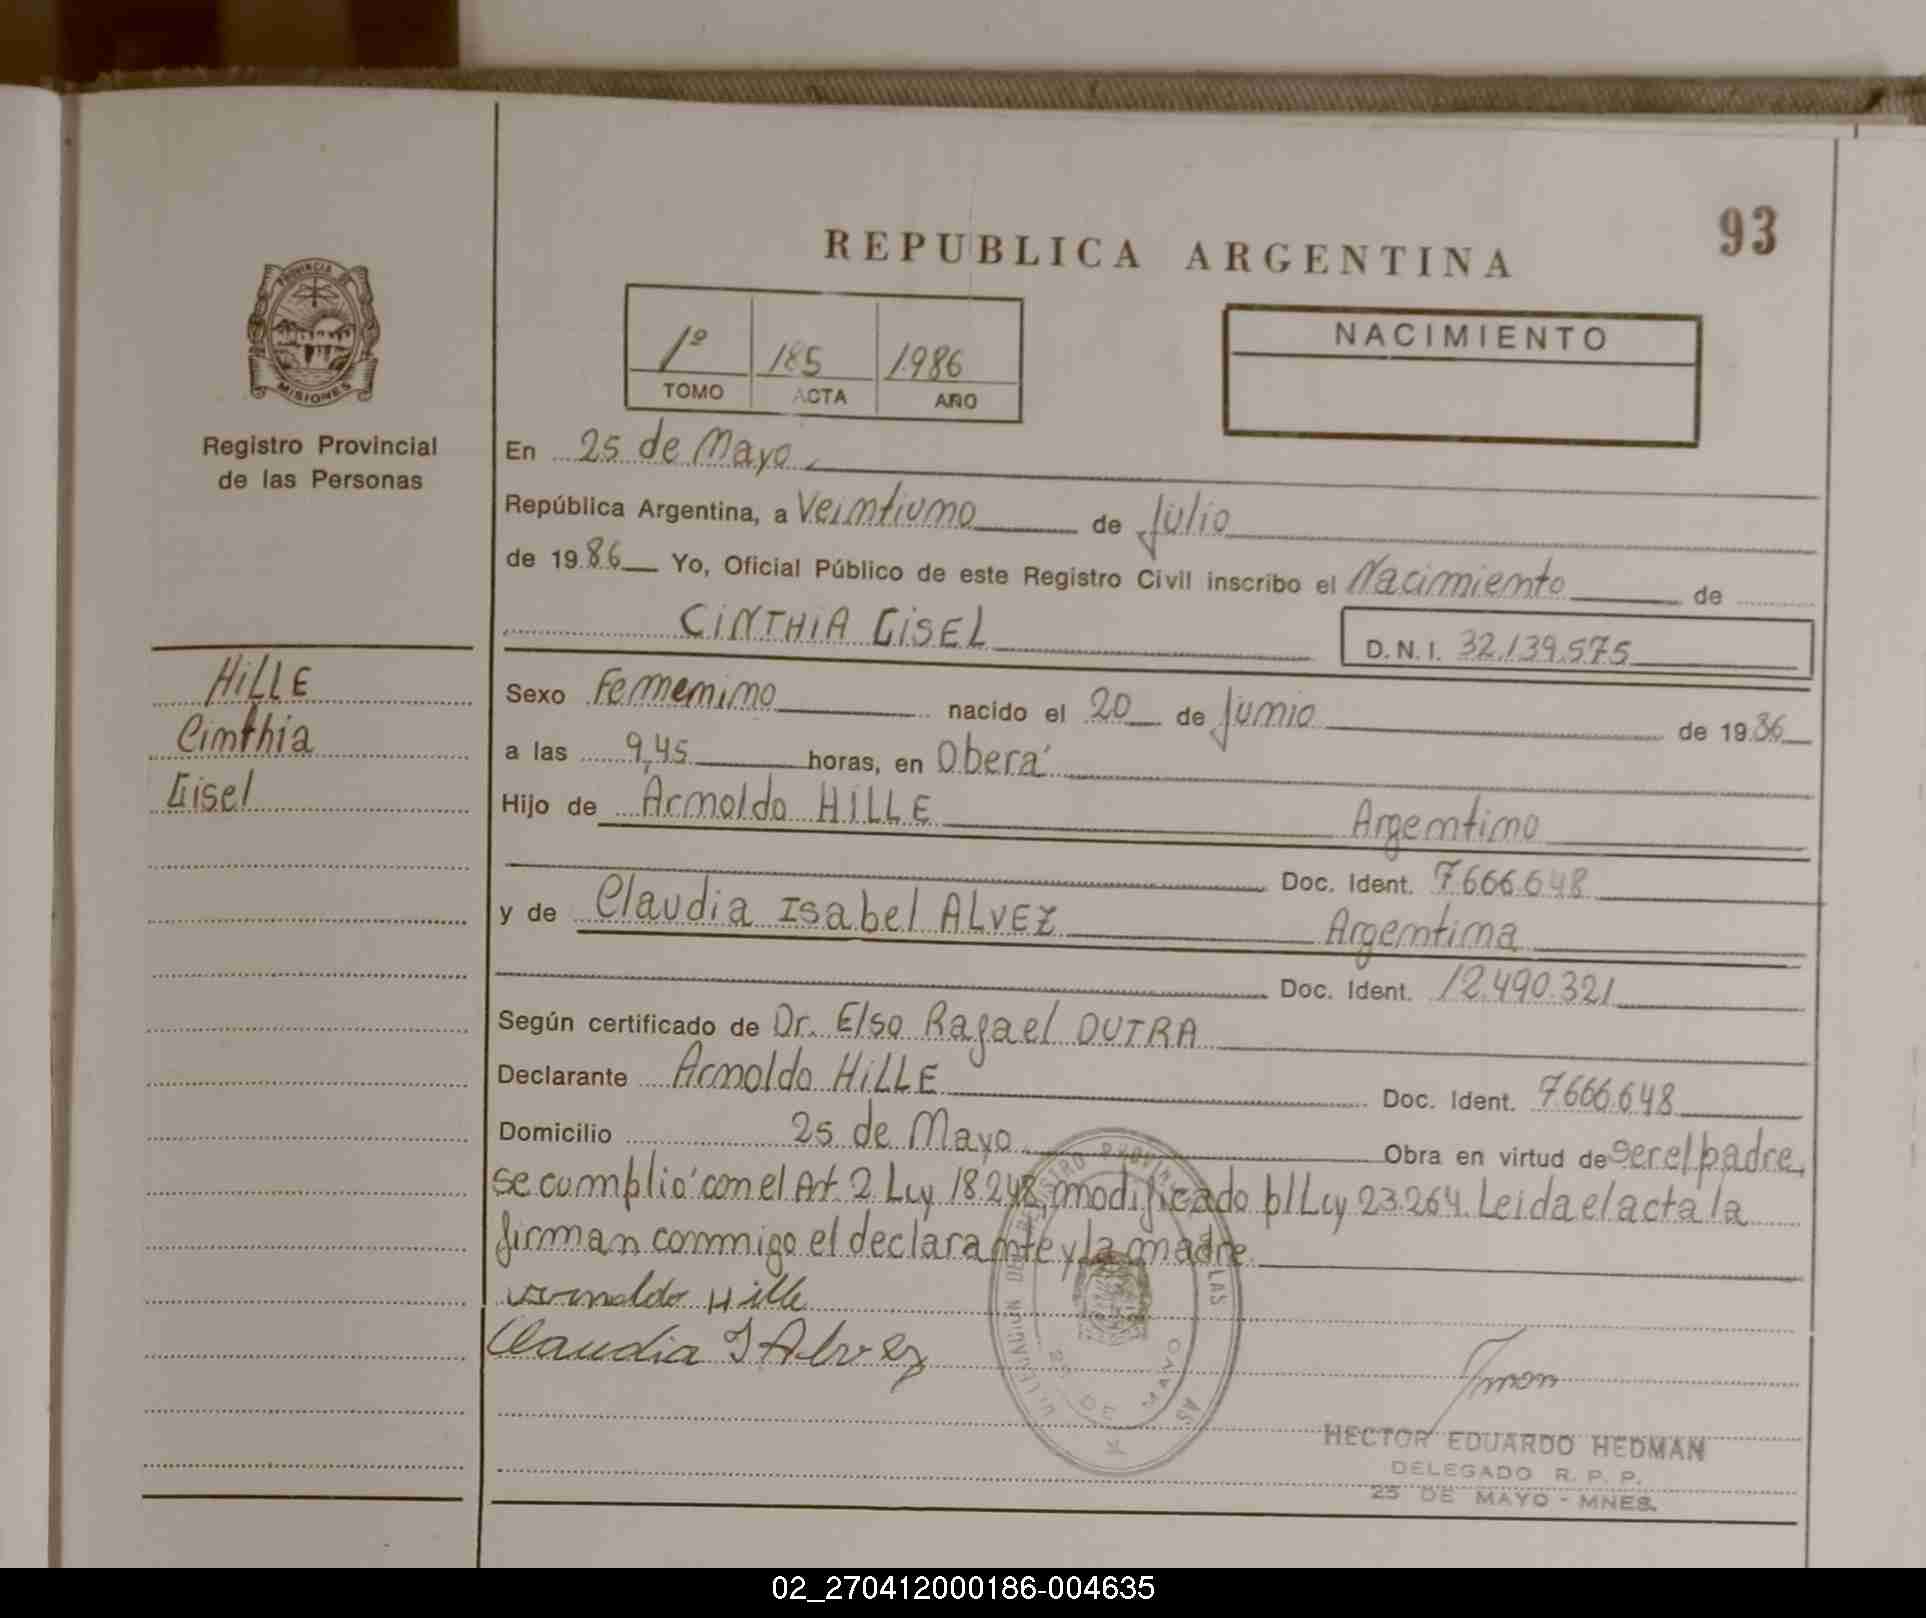 93
REPUBLICA ARGENTINA
PROVINCIA DE
MISIONES
Registro Provincial
de las Personas
HiLLE
Cinthia
Gisel
1º 185 1986
TOMO ACTA AÑO
NACIMIENTO
En 25 de Mayo
República Argentina, a Veintiuno de Julio
de 1986 Yo, Oficial Público de este Registro Civil inscribo el Nacimiento de
CiNTHiA GiSEL D.N.I. 32.139.575
Sexo Femenino nacido el 20 de Junio de 1986
a las 9,45 horas, en Oberá
Hijo de Arnoldo HiLLE Argentino
Doc. Ident. 7.666.648
y de Claudia Isabel ALVEZ Argentina
Doc. Ident. 12.490.321
Según certificado de Dr. Elso Rafael DUTRA
Declarante Arnoldo HiLLE Doc. Ident. 7.666.648
Domicilio 25 de Mayo Obra en virtud de ser el padre,
se cumplió con el Art. 2 Ley 18.248, modificado p/Ley 23.264. Leida el acta la
firman conmigo el declarante y la madre.
Arnoldo Hille
Claudia I Alvez
25 DE MAYO
HECTOR EDUARDO HEDMAN
DELEGADO R. P. P.
25 DE MAYO - MNES.
02_270412000186-004635